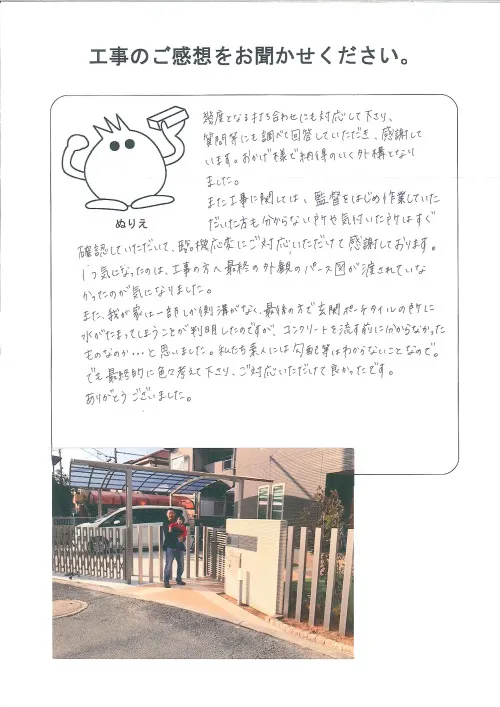 工事のご感想をお聞かせください。
幾度となる打ち合わせにも対応して下さり、
質問等にも調べて回答していただき、感謝して
います。おかげ様で納得のいく外構となり
ました。
また工事に関しては、監督をはじめ作業していた
だいた方も分からない所や気付いた所はすぐ
ぬりえ
確認していただいて、臨機応変にご対応いただけて感謝しております。
1つ気になったのは、工事の方へ最終の外観のパース図が渡されていな
かったのが気になりました。
また、我が家は一部しか側溝がなく、最後の方で玄関ポーチタイルの所に
水がたまってしまうことが判明したのですが、コンクリートを流す前に分からなかった
ものなのか・・・と思いました。私たち素人には勾配等はわからないことなので。
でも最終的に色々考えて下さり、ご対応いただけて良かったです。
ありがとうございました。